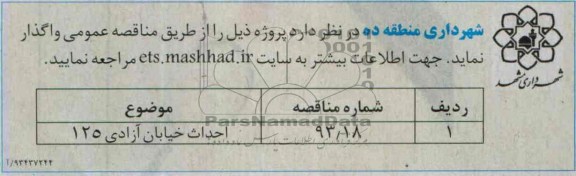 شهرداری منطقه ده در نظر دارد پروژه ذیل را از طریق مناقصه عمومی واگذار
نماید. جهت اطلاعات بیشتر به سایت ets.mashhad.ir مراجعه نمایید.
شهرداری مشهد
ردیف شماره مناقصه موضوع
۱ ۹۳/۱۸ احداث خیابان آزادی ۱۲۵
ParsNamadData
۹۳۴۳۷۲۴۴/آ